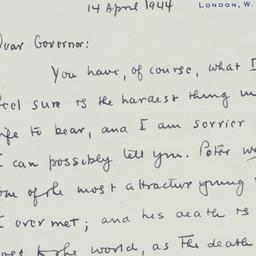 14 April 1944 LONDON, W.
Dear Governor:
You have, of course, what I
feel sure is the hardest thing in
life to bear, and I am sorrier
I can possibly tell you. Peter
one of the most attractive young
I ever met; and his death is
to the world, as the death